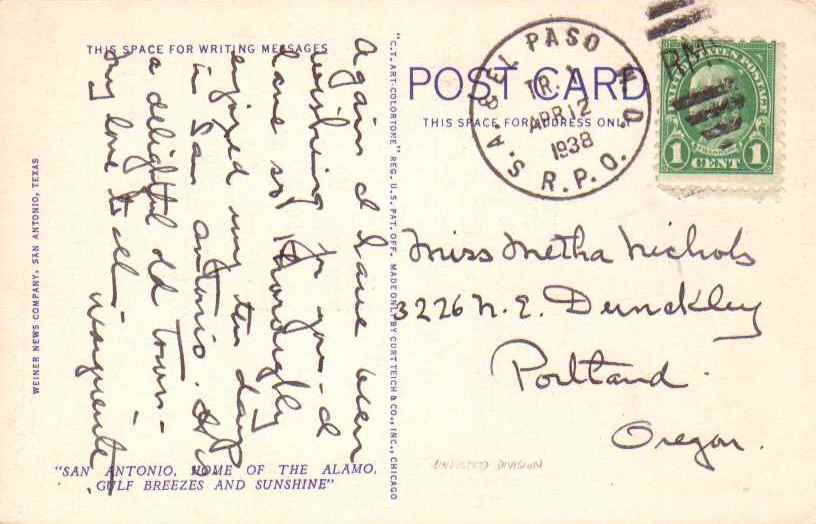 THIS SPACE FOR WRITING MESSAGES
Again I have been
wishing for you - I
have so thoroughly
enjoyed my ten days
in San Antonio. It is
a delightful old town -
My love to all -
Marguerite
"SAN ANTONIO, HOME OF THE ALAMO,
GULF BREEZES AND SUNSHINE"
WEINER NEWS COMPANY, SAN ANTONIO, TEXAS
"C.T. ART-COLORTONE" REG. U.S. PAT. OFF. MADE ONLY BY CURT TEICH & CO., INC., CHICAGO
POST CARD
THIS SPACE FOR ADDRESS ONLY
S.A. & EL PASO W.D.
TR. 1
APR 12
1938
R.P.O.
RMS
UNITED STATES POSTAGE
1 CENT 1
Miss Metha Nichols
3226 N.E. Dunckley
Portland
Oregon.
UNLISTED DIVISION